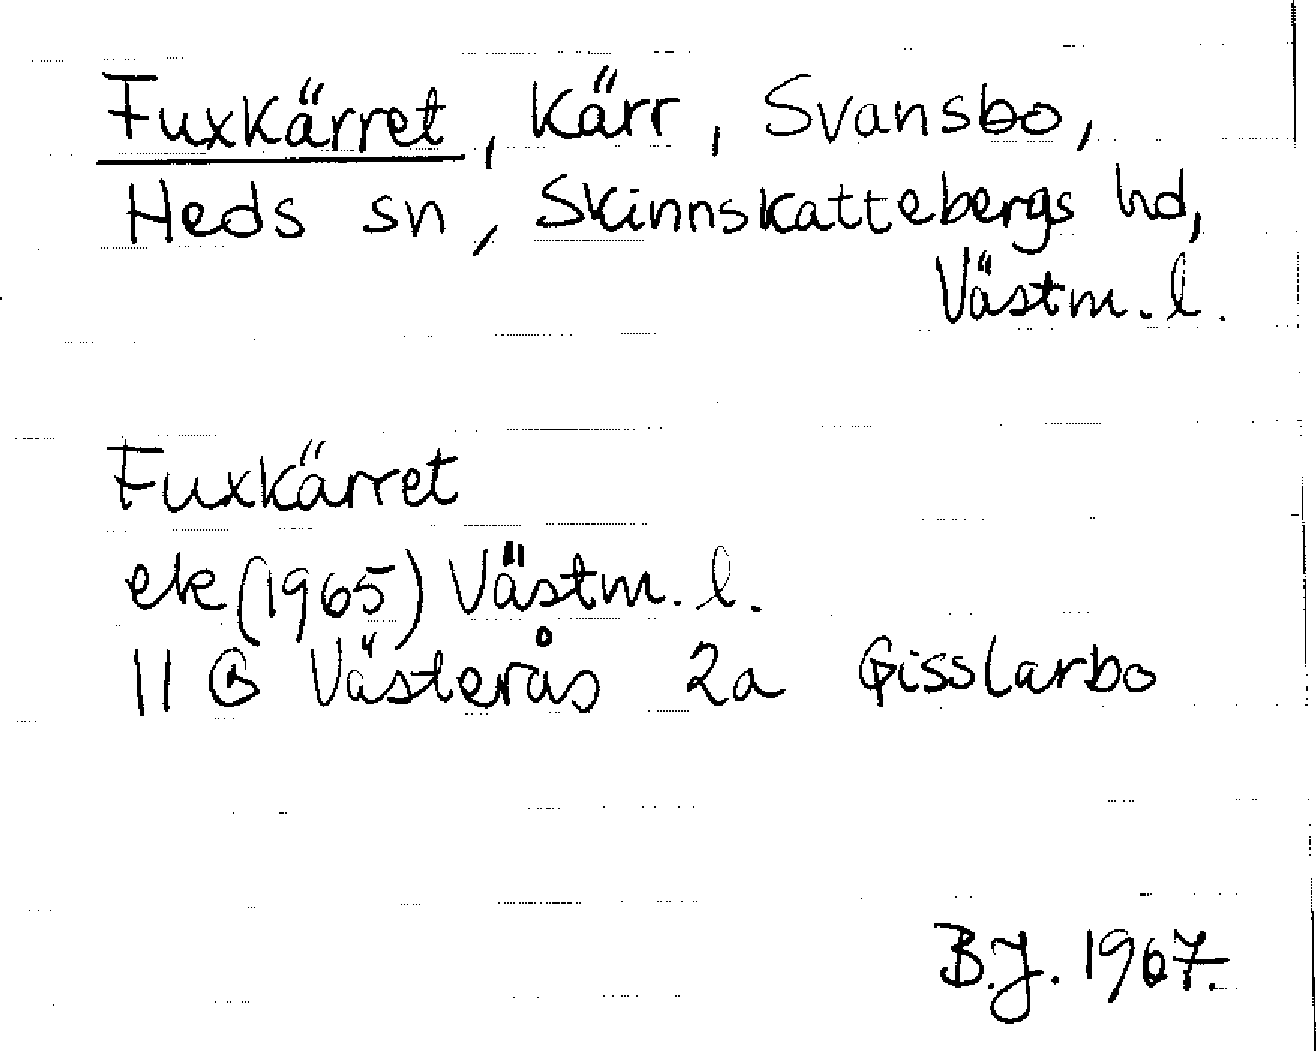 Fuxkärret, kärr, Svansbo,
Heds sn, Skinnskattebergs hd,
Västm. l.
Fuxkärret
ek (1965) Västm. l.
11 G Västerås 2a Gisslarbo
B.J. 1967.